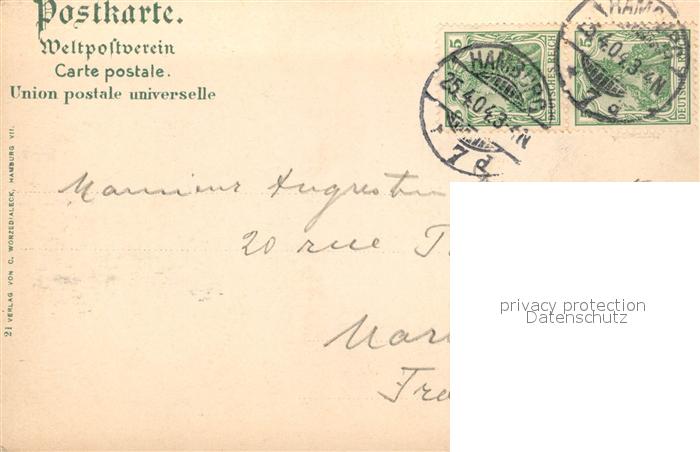 Postkarte.
Weltpostverein
Carte postale.
Union postale universelle
5
DEUTSCHES REICH
5
DEUTSCHES REICH
HAMBURG
25.4.04.3-4N
7 d
HAMBURG
25.4.04.3-4N
7 d
Monsieur Augustin
20 rue
Mar
Fra
privacy protection
Datenschutz
21 VERLAG VON C. WORZEDIALECK, HAMBURG VII.